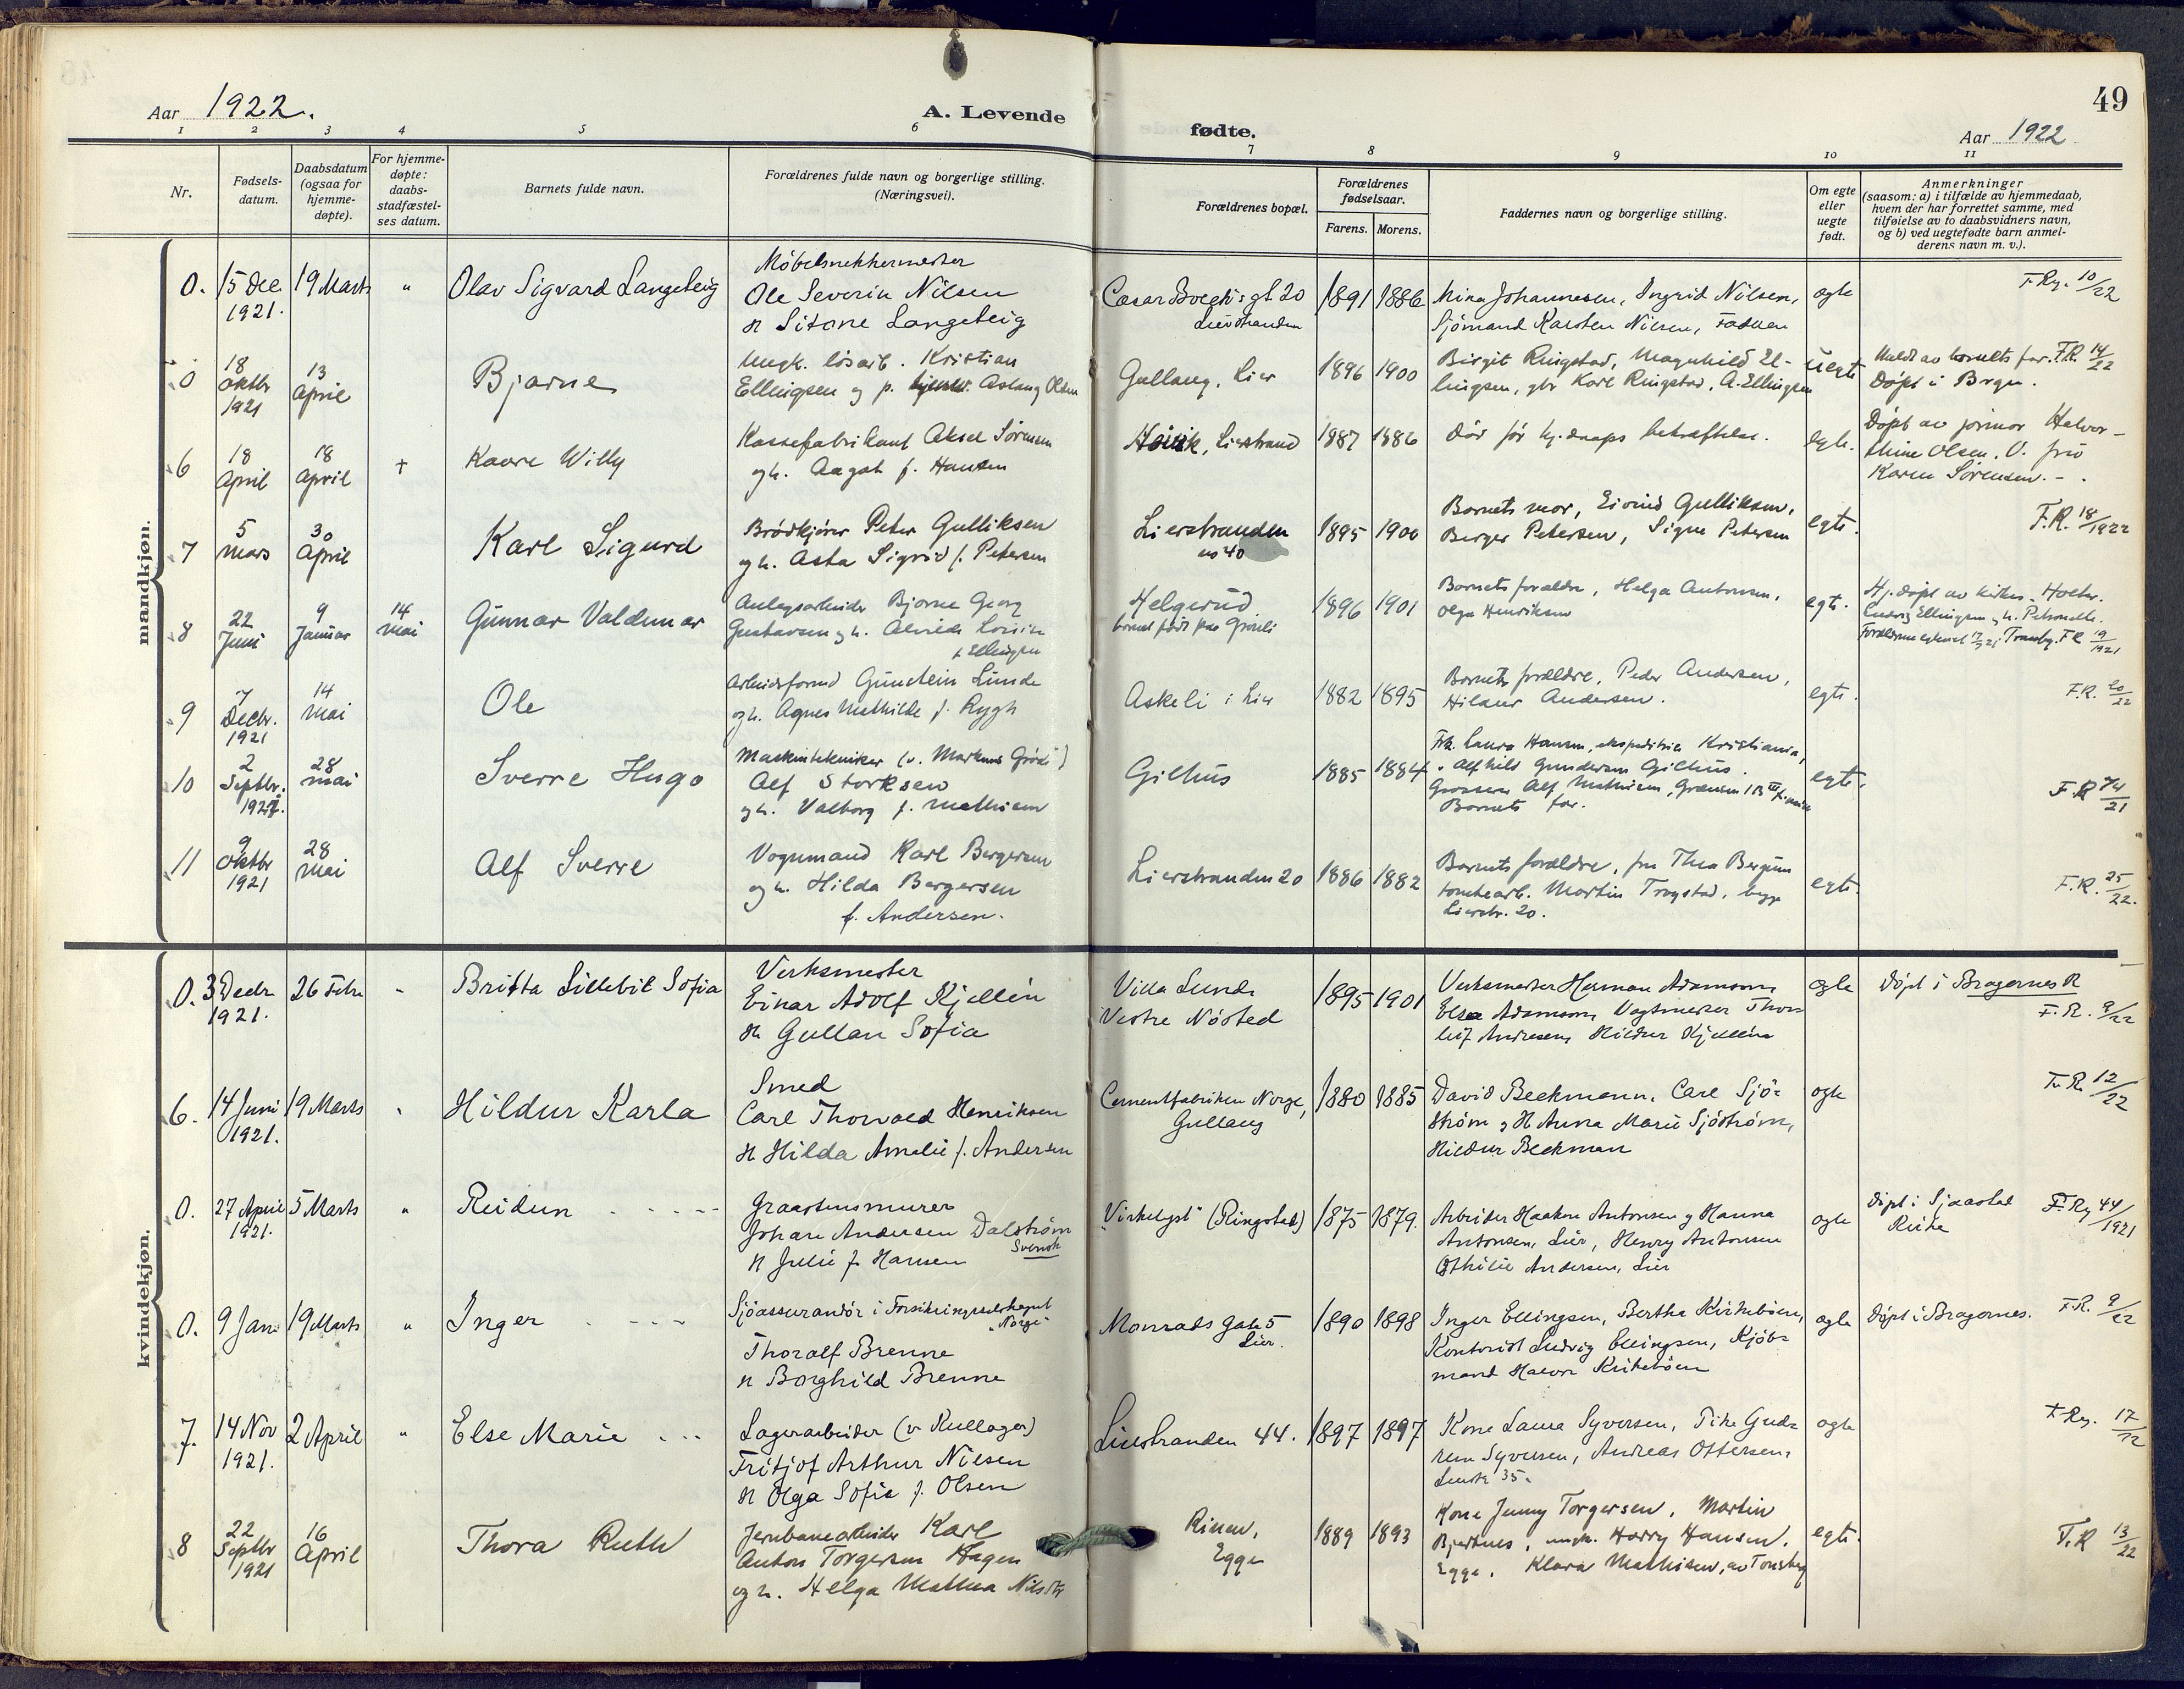 49
Aar 1922.
A. Levende
fødte.
Aar 1922
1 2 3 4 5 6 7 8 9 10 11
Nr.
Fødsels-
datum.
Daabsdatum
(ogsaa for
hjemme-
døpte).
For hjemme-
døpte:
daabs-
stadfæstel-
ses datum.
Barnets fulde navn.
Forældrenes fulde navn og borgerlige stilling.
(Næringsvei).
Forældrenes bopæl.
Forældrenes
fødselsaar.
Farens. Morens.
Faddernes navn og borgerlige stilling.
Om egte
eller
uegte
født.
Anmerkninger
(saasom: a) i tilfælde av hjemmedaab,
hvem der har forrettet samme, med
tilføielse av to daabsvidners navn,
og b) ved uegtefødte barn anmel-
derens navn m. v.).
mandkjøn.
0.
15 Dec
1921.
19 Marts
"
Olav Sigvard Langeteig
Møbelsnekkermester
Ole Severin Nilsen
H Sitone Langeteig
gt. 20
Lierstranden
1891
1886
Mina Johannesen, Ingrid Nilsen,
Sjømand Karsten Nilsen, Faderen
egte
F. Reg. 10/22
0
18
Oktbr
1921
13
April
Bjarne
Ungk. løsarb. Kristian
Ellingsen og p. Aslaug Olsen
Gullaug, Lier
1896
1900
Birgit Ringstad, Magnhild El-
lingsen, gbr Karl Ringstad, A. Ellingsen
uegte
Meldt av barnets far. F.R. 14/22
Døpt i Brgn.
6
18
April
18
April
+
Kaare Willy
Kassefabrikant Aksel Sørensen
og h. Aagot f. Hansen
Lierstrand
1887
1886
Død før hj. daaps bekræftelse.
egte.
Døpt av jormor Halvor-
thine Olsen. V. fru
Karen Sørensen. -.
7
5
mars
30
April
Karl Sigurd
Brødkjører Peter Gulliksen
og h. Asta Sigrid f. Petersen
Lierstranden
no 40
1895
1900
Barnets mor, Eivind Gulliksen,
Berger Petersen, Signe Petersen
egte.
F.R. 18/1922
8
22
Juni
9
Januar
14
mai
Gunnar Valdemar
Anlegsarbeider Bjarne Georg
Gustavsen og h. Alvilde Lovise
f. Ellingsen
Helgerud
barnet født paa
1896
1901
Barnets forældre, Helga Antonsen,
Olga Henriksen
egte.
Hj. døpt av
Ludvig Ellingsen og h. Petronelle.
F.R. 19/1921
9
7
Decbr.
1921
14
mai
Ole
Arbeidsformd Gunstein Linde
og h. Agnes Mathilde f. Rygh
Askeli i Lier
1882
1895
Barnets forældre, Peder Andersen,
Hilmer Andersen.
egte.
F.R. 20/22
10
2
Septbr.
28
mai
Sverre Hugo
Maskintekniker
Alf Storksen
og h. Valborg f. Mathisen
Gilhus
1885
1884
Frk. Laura Hansen, ekspeditrice Kristiania,
" Alfhild Gundersen Gilhus.
Grosserer Alf Mathisen,
Barnets far.
egte.
11
9
Oktbr
1921
28
mai
Alf Sverre
Vognmand Karl Bergersen
og h. Hilda Bergersen
f. Andersen.
Lierstranden 20
1886
1882
Barnets forældre, fru Thea Bergersen
tomtearb. Martin Trøgstad, begge
Lierstr. 20.
egte.
F.R. 25/22.
kvindekjøn.
0.
3 Decbr
1921.
26 Febr
"
Britta Lillebil Sofia
Verksmester
Einar Adolf Kjellén
H Gullan Sofia
Villa Lunde
Vestre Nøsted
1895
1901
Verksmester Herman Adamsson,
Elsa Adamsson, Vagtmester Thor-
leif Andresen, Hildur Kjellén
egte
døpt i Bragernes K
F.R. 9/22
6.
14 Juni
1921.
19 Marts
"
Hildur Karla
Smed
Carl Thorvald Henriksen
H Hilda Amalie f. Andersen
Cementfabriken Norge,
Gullaug
1880
1885
David Beckmann, Carl Sjö-
ström og H Anna Marie Sjöström,
Hildur Beckman
egte
F. R. 12/22
0.
27 April
1921.
5 Marts
"
Reidun
Graastensmurer
Johan Andersen Dalström
Svensk
H Julie f. Hansen
"Virkelyst" (Ringstad)
1875
1879.
Arbeider Haakon Antonsen og Hanna
Antonsen, Lier, Henry Antonsen
Othilie Andersen, Lier
egte
døpt i Sjaastad
Kirke
F. Reg 44/1921
0.
9 Jan
19 Marts
"
Inger
Sjøassurandør i Forsikringsselskapet
"Norge"
Thoralf Brenne
H Borghild Brenne
Monrads gate 5
Lier.
1890
1898
Inger Ellingsen, Bertha Kirkebøen,
Kontorist Ludvig Ellingsen, Kjøb-
mand Halvor Kirkebøen
egte
døpt i Bragernes.
F.R. 9/22
7.
14 Nov
1921.
2 April
"
Else Marie
Lagerarbeider (v. Kullager)
Fritjof Arthur Nilsen
H Olga Sofie f. Olsen
Lierstranden 44.
1897
1897
Kone Laura Syversen, Pike Gud-
run Syversen, Andreas Ottersen,
Lierstr 35.
egte
F. Reg. 17/22
8
22
Septbr
1921
16
April
Thora Ruth
Jernbanearbeider Karl
Anton Torgersen Hagen
og h. Helga Mathea Nilsdtr
Egge
1889
1893
Kone Jenny Torgersen, Martin
Bjertnes, ungk. Harry Hansen,
Egge. Klara Mathisen, av Tønsberg
egte.
F.R 13/22